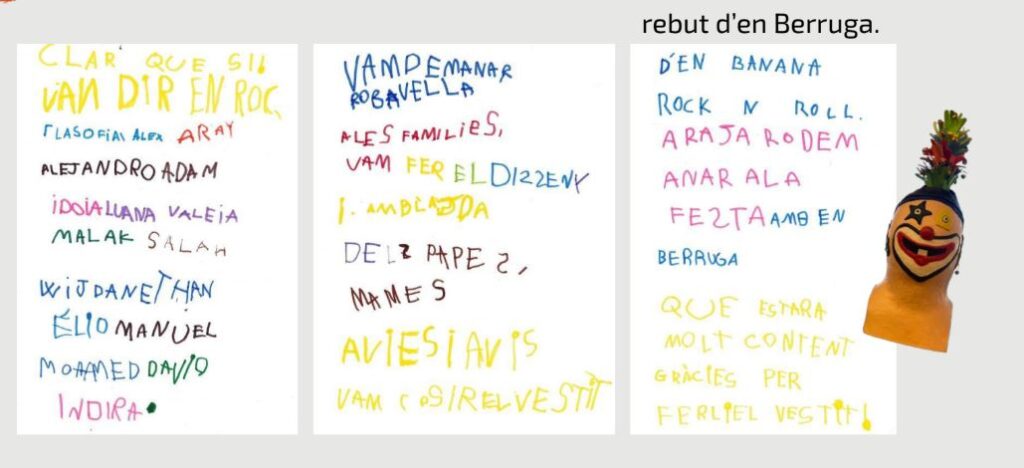 rebut d'en Berruga.
CLAR QUE SI!
VAN DIR EN ROC,
SOFIA ALEX ARAY
ALEJANDRO ADAM
IDOIA LUANA VALEIA
MALAK SALAH
WIJDAN ETHAN
ÉLIO MANUEL
MOHAMED DAVID
INDIRA.
VAM DEMANAR
ROBA VELLA
ALES FAMILIES,
VAM FER EL DIZZENY
I. AMB LAJDA
DELS PAPES,
MAMES
AVIES I AVIS
VAM COSIR EL VESTIT
D'EN BANANA
ROCK N ROLL.
ARAJA RODEM
ANAR ALA
FEZTA AMB EN
BERRUGA
QUE ESTARA
MOLT CONTENT
GRÀCIES PER
FERLIEL VESTIT!